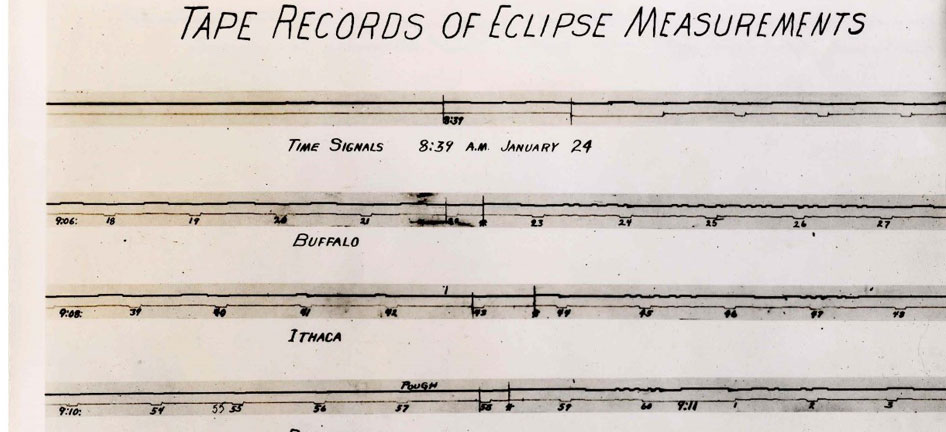 TAPE RECORDS OF ECLIPSE MEASUREMENTS
8:39
TIME SIGNALS 8:39 A.M. JANUARY 24
9:06: 18 19 20 21 23 24 25 26 27
BUFFALO
9:08: 39 40 41 42 43 44 45 46 47 48
ITHACA
POUGH
9:10: 54 55 55 56 57 58 59 60 9:11 1 2 3